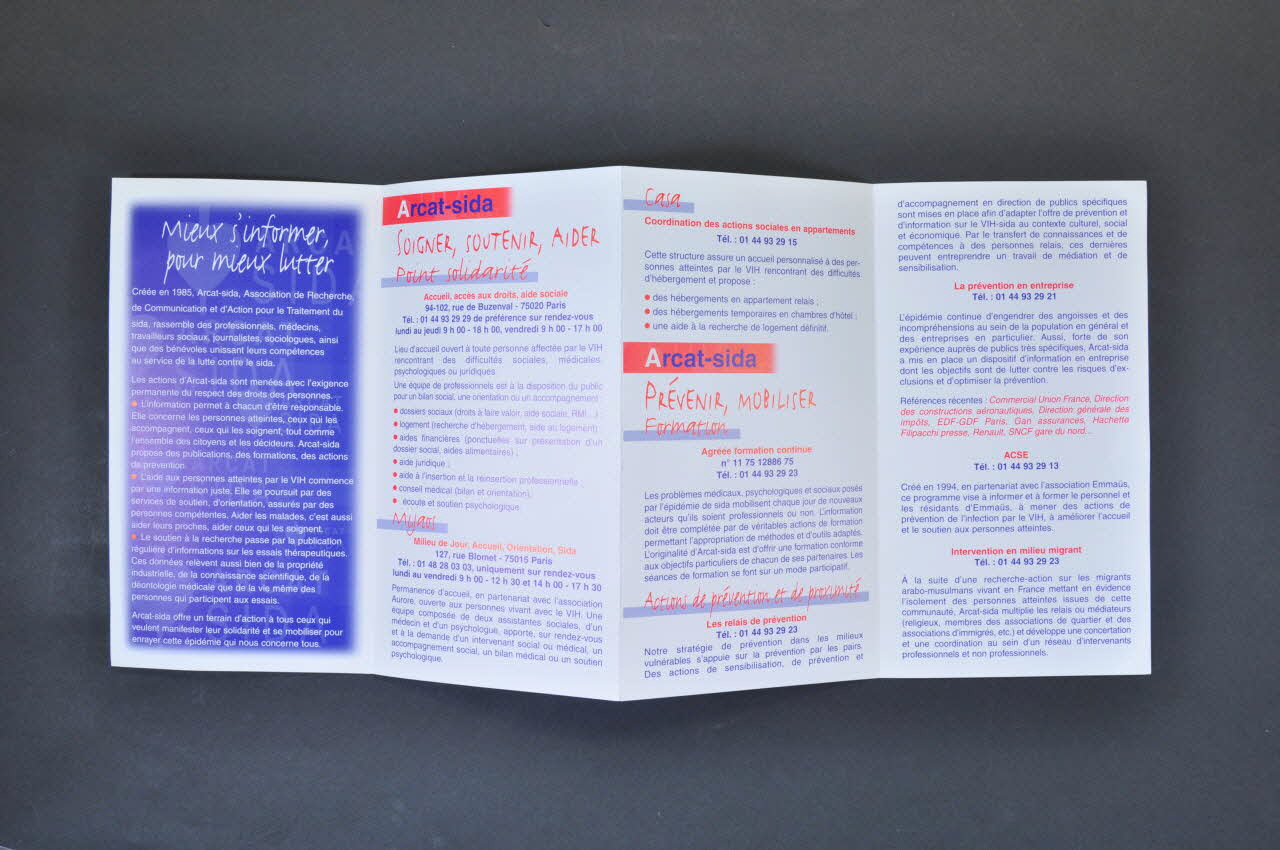 Mieux s'informer,
pour mieux lutter
Créée en 1985, Arcat-sida, Association de Recherche,
de Communication et d'Action pour le Traitement du
sida, rassemble des professionnels, médecins,
travailleurs sociaux, journalistes, sociologues, ainsi
que des bénévoles unissant leurs compétences
au service de la lutte contre le sida.
Les actions d'Arcat-sida sont menées avec l'exigence
permanente du respect des droits des personnes.
● L'information permet à chacun d'être responsable.
Elle concerne les personnes atteintes, ceux qui les
accompagnent, ceux qui les soignent, tout comme
l'ensemble des citoyens et les décideurs. Arcat-sida
propose des publications, des formations, des actions
de prévention.
● L'aide aux personnes atteintes par le VIH commence
par une information juste. Elle se poursuit par des
services de soutien, d'orientation, assurés par des
personnes compétentes. Aider les malades, c'est aussi
aider leurs proches, aider ceux qui les soignent.
● Le soutien à la recherche passe par la publication
régulière d'informations sur les essais thérapeutiques.
Ces données relèvent aussi bien de la propriété
industrielle, de la connaissance scientifique, de la
déontologie médicale que de la vie même des
personnes qui participent aux essais.
Arcat-sida offre un terrain d'action à tous ceux qui
veulent manifester leur solidarité et se mobiliser pour
enrayer cette épidémie qui nous concerne tous.
Arcat-sida
SOIGNER, SOUTENIR, AIDER
Point solidarité
Accueil, accès aux droits, aide sociale
94-102, rue de Buzenval - 75020 Paris
Tél. : 01 44 93 29 29 de préférence sur rendez-vous
lundi au jeudi 9 h 00 - 18 h 00, vendredi 9 h 00 - 17 h 00
Lieu d'accueil ouvert à toute personne affectée par le VIH
rencontrant des difficultés sociales, médicales,
psychologiques ou juridiques.
Une équipe de professionnels est à la disposition du public
pour un bilan social, une orientation ou un accompagnement :
● dossiers sociaux (droits à faire valoir, aide sociale, RMI...) ;
● logement (recherche d'hébergement, aide au logement) ;
● aides financières (ponctuelles sur présentation d'un
dossier social, aides alimentaires) ;
● aide juridique ;
● aide à l'insertion et la réinsertion professionnelle ;
● conseil médical (bilan et orientation),
● écoute et soutien psychologique.
Myaos
Milieu de Jour, Accueil, Orientation, Sida
127, rue Blomet - 75015 Paris
Tél. : 01 48 28 03 03, uniquement sur rendez-vous
lundi au vendredi 9 h 00 - 12 h 30 et 14 h 00 - 17 h 30
Permanence d'accueil, en partenariat avec l'association
Aurore, ouverte aux personnes vivant avec le VIH. Une
équipe composée de deux assistantes sociales, d'un
médecin et d'un psychologue, apporte, sur rendez-vous
et à la demande d'un intervenant social ou médical, un
accompagnement social, un bilan médical ou un soutien
psychologique.
Casa
Coordination des actions sociales en appartements
Tél. : 01 44 93 29 15
Cette structure assure un accueil personnalisé à des per-
sonnes atteintes par le VIH rencontrant des difficultés
d'hébergement et propose :
● des hébergements en appartement relais ;
● des hébergements temporaires en chambres d'hôtel ;
● une aide à la recherche de logement définitif.
Arcat-sida
PRÉVENIR, MOBILISER
Formation
Agréée formation continue
n° 11 75 12886 75
Tél. : 01 44 93 29 23
Les problèmes médicaux, psychologiques et sociaux posés
par l'épidémie de sida mobilisent chaque jour de nouveaux
acteurs qu'ils soient professionnels ou non. L'information
doit être complétée par de véritables actions de formation
permettant l'appropriation de méthodes et d'outils adaptés.
L'originalité d'Arcat-sida est d'offrir une formation conforme
aux objectifs particuliers de chacun de ses partenaires. Les
séances de formation se font sur un mode participatif.
Actions de prévention et de proximité
Les relais de prévention
Tél. : 01 44 93 29 23
Notre stratégie de prévention dans les milieux
vulnérables s'appuie sur la prévention par les pairs.
Des actions de sensibilisation, de prévention et
d'accompagnement en direction de publics spécifiques
sont mises en place afin d'adapter l'offre de prévention et
d'information sur le VIH-sida au contexte culturel, social
et économique. Par le transfert de connaissances et de
compétences à des personnes relais, ces dernières
peuvent entreprendre un travail de médiation et de
sensibilisation.
La prévention en entreprise
Tél. : 01 44 93 29 21
L'épidémie continue d'engendrer des angoisses et des
incompréhensions au sein de la population en général et
des entreprises en particulier. Aussi, forte de son
expérience auprès de publics très spécifiques, Arcat-sida
a mis en place un dispositif d'information en entreprise
dont les objectifs sont de lutter contre les risques d'ex-
clusions et d'optimiser la prévention.
Références récentes : Commercial Union France, Direction
des constructions aéronautiques, Direction générale des
impôts, EDF-GDF Paris, Gan assurances, Hachette
Filipacchi presse, Renault, SNCF gare du nord...
ACSE
Tél. : 01 44 93 29 13
Créé en 1994, en partenariat avec l'association Emmaüs,
ce programme vise à informer et à former le personnel et
les résidants d'Emmaüs, à mener des actions de
prévention de l'infection par le VIH, à améliorer l'accueil
et le soutien aux personnes atteintes.
Intervention en milieu migrant
Tél. : 01 44 93 29 23
À la suite d'une recherche-action sur les migrants
arabo-musulmans vivant en France mettant en évidence
l'isolement des personnes atteintes issues de cette
communauté, Arcat-sida multiplie les relais ou médiateurs
(religieux, membres des associations de quartier et des
associations d'immigrés, etc.) et développe une concertation
et une coordination au sein d'un réseau d'intervenants
professionnels et non professionnels.